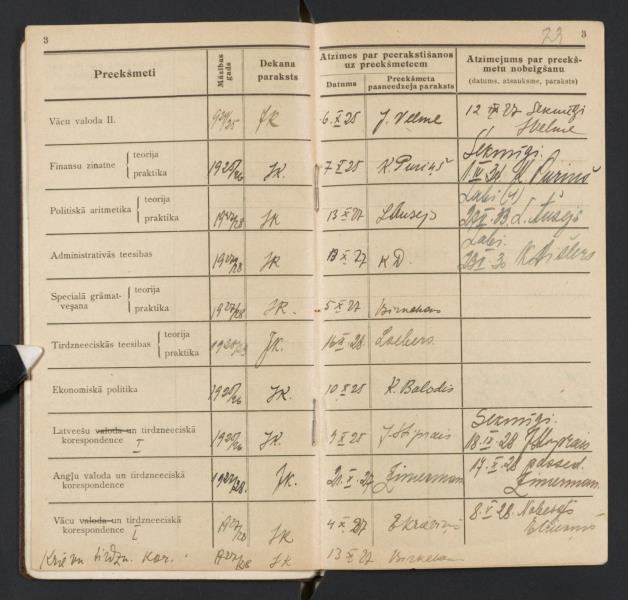 3
73 3
Preekšmeti Mācības gads Dekana paraksts Atzīmes par peerakstīšanos uz preekšmeteem Datums Preekšmeta pasneedzēja paraksts Atzīmējums par preekšmetu nobeigšanu (datums, atsauksme, paraksts)
Vācu valoda II. JK 6. X 25 J. Velme 12 27 Sekmīgi
JVelme
Finansu zinatne { teorija praktika 1925/26 JK. 7 X 25 K. Puriņš Sekmīgi.
K. Puriņš
Politiskā aritmetika { teorija praktika 1927/28 JK 13 X 27 Labi (4)
Administratīvās teesības 1927/28 JK 13 X 27 K D. Labi.
Specialā grāmatvešana { teorija praktika 1927/28 JK. 5 X 27
Tirdzneeciskās teesības { teorija praktika JK. 28. Loebers
Ekonomiskā politika 1925/26 JK. 10 X 25 K. Balodis
Latveešu valoda un tirdzneeciskā korespondence I 1925/26 JK. 9 X 25 Sekmīgi.
18. IX 28
Angļu valoda un tirdzneeciskā korespondence 1927/28. JK. 27 Zimerman 14. X 28 passed.
Zimerman
Vācu valoda un tirdzneeciskā korespondence I 1927/28 JK 4 X 27 8. X 28.
Krievu tirdzn. kor. 1927/28 JK 13 X 27